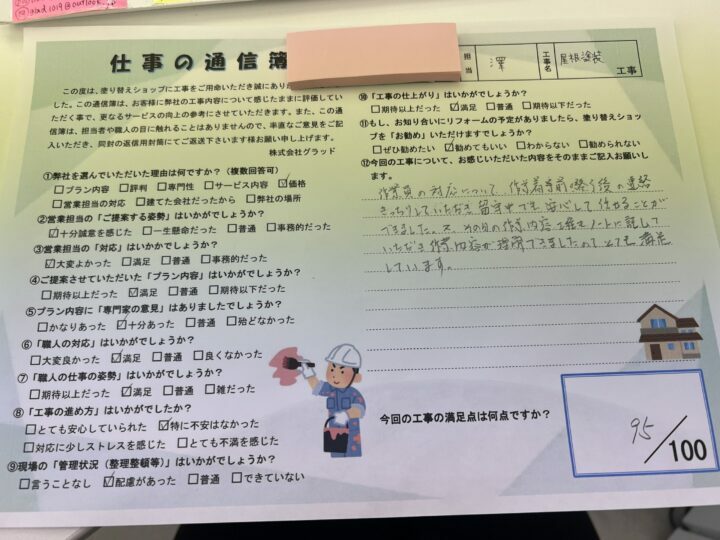 @outlook.jp
仕事の通信簿
担当
澤
工事名
屋根塗装
工事
この度は、塗り替えショップに工事をご用命いただき誠にあり
した。この通信簿は、お客様に弊社の工事内容について感じたままに評価してい
ただく事で、更なるサービスの向上の参考にさせていただきます。また、この通
信簿は、担当者や職人の目に触れることはありませんので、率直なご意見をご記
入いただき、同封の返信用封筒にてご返送下さいます様お願いします。
株式会社グラッド
①弊社を選んでいただいた理由は何ですか?(複数回答可)
□プラン内容 □評判 □専門性 □サービス内容 ☑価格
□営業担当の対応 □建てた会社だったから □弊社の場所
②営業担当の「ご提案する姿勢」はいかがでしょうか?
☑十分誠意を感じた □一生懸命だった □普通 □事務的だった
③営業担当の「対応」はいかがでしょうか?
☑大変よかった □満足 □普通 □事務的だった
④ご提案させていただいた「プラン内容」はいかがでしょうか?
□期待以上だった ☑満足 □普通 □期待以下だった
⑤プラン内容に「専門家の意見」はありましたでしょうか?
□かなりあった ☑十分あった □普通 □殆どなかった
⑥「職人の対応」はいかがでしょうか?
□大変良かった ☑満足 □普通 □良くなかった
⑦「職人の仕事の姿勢」はいかがでしょうか?
□期待以上だった ☑満足 □普通 □雑だった
⑧「工事の進め方」はいかがでしたか?
□とても安心していられた ☑特に不安はなかった
□対応に少しストレスを感じた □とても不満を感じた
⑨現場の「管理状況(整理整頓等)」はいかがでしょうか?
□言うことなし ☑配慮があった □普通 □できていない
⑩「工事の仕上がり」はいかがでしょうか?
□期待以上だった ☑満足 □普通 □期待以下だった
⑪もし、お知り合いにリフォームの予定がありましたら、塗り替えショッ
プを「お勧め」いただけますでしょうか?
□ぜひ勧めたい ☑勧めてもいい □わからない □勧められない
⑫今回の工事について、お感じいただいた内容をそのままご記入お願いし
ます。
作業員の対応について、作業着手前、終了後の連絡
きっちりしていただき留守中でも安心して任せることが
できました。又、その日の作業内容、工程をノートに記して
いただき作業内容が理解できましたので、とても満足
しています。
今回の工事の満足点は何点ですか?
95/100